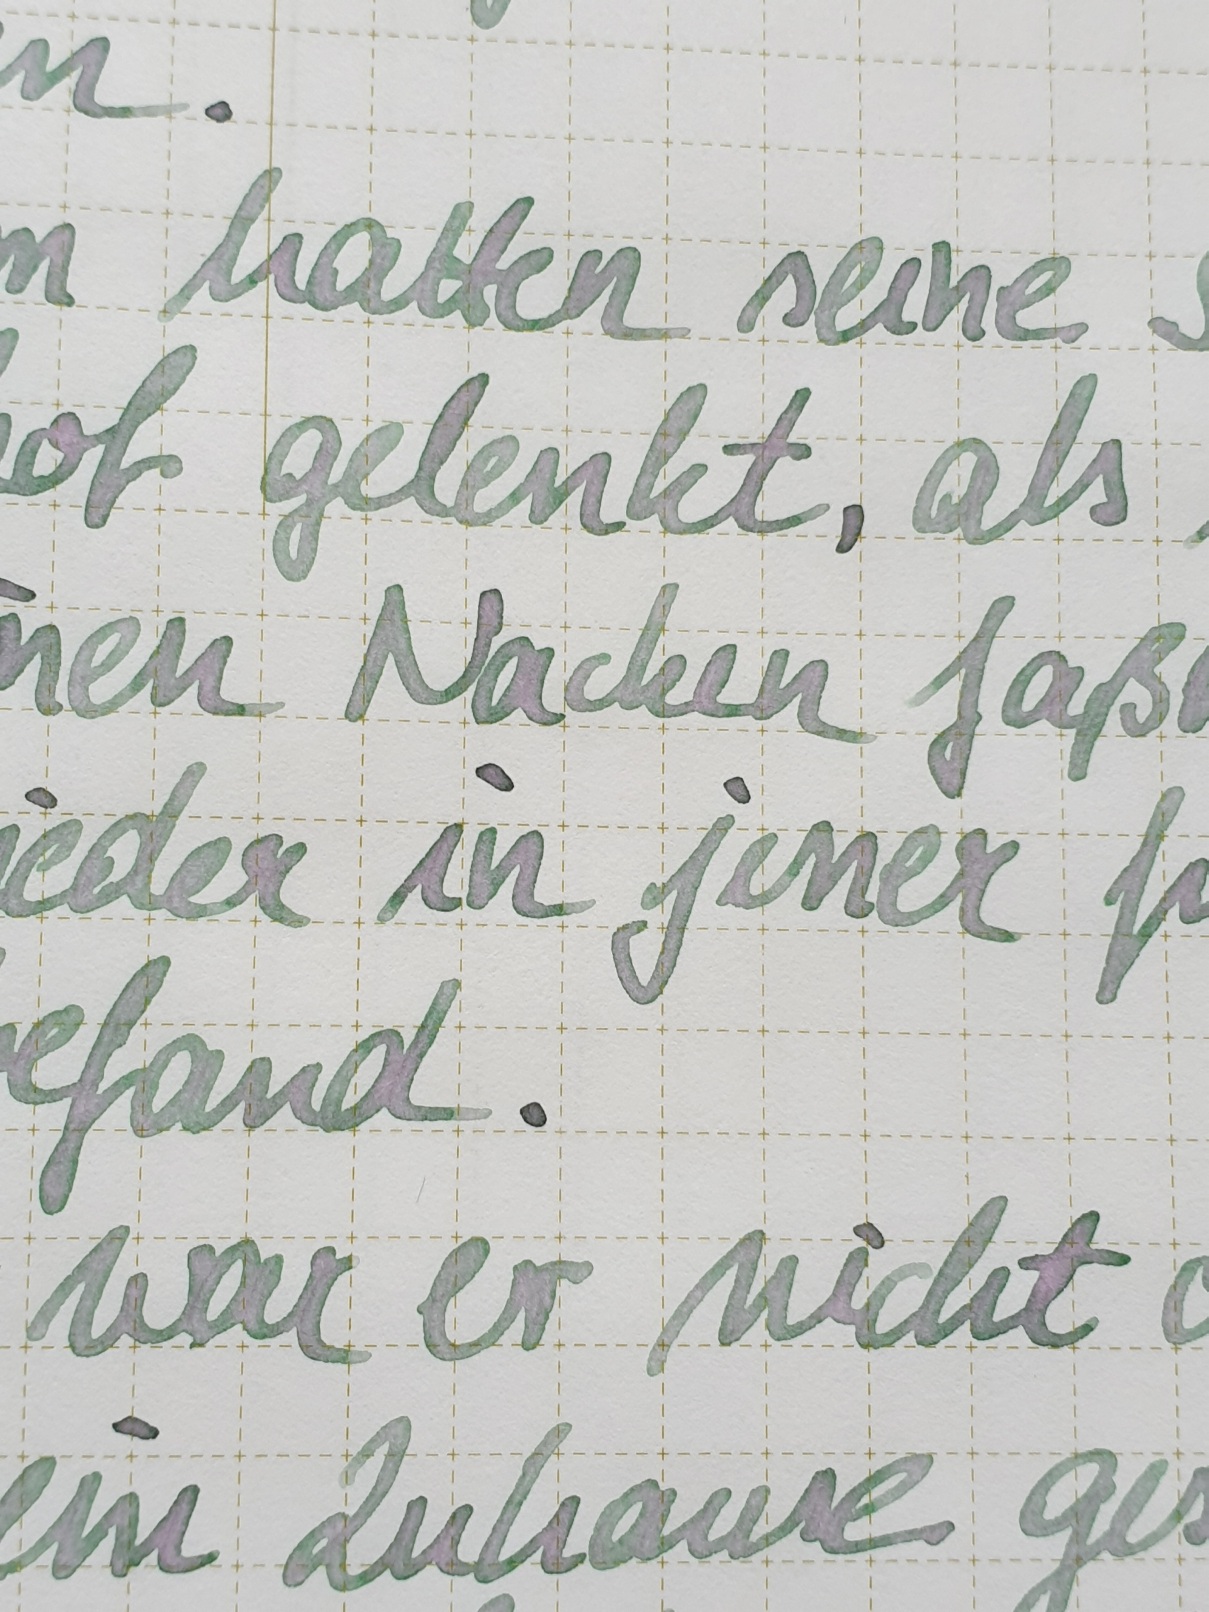 in.
m hatten seine S
hof gelenkt, als
inen Nacken faßt
ieder in jener
befand.
war er nicht
ein Zuhause ges